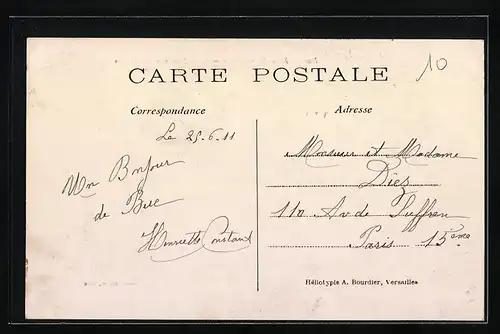 10
CARTE POSTALE
Correspondance
Adresse
Le 25.6.11
Un Bonjour
de Buc
Henriette Constant
Monsieur et Madame
Diez
110 Av de Suffren
Paris 15eme
Héliotypie A. Bourdier, Versailles